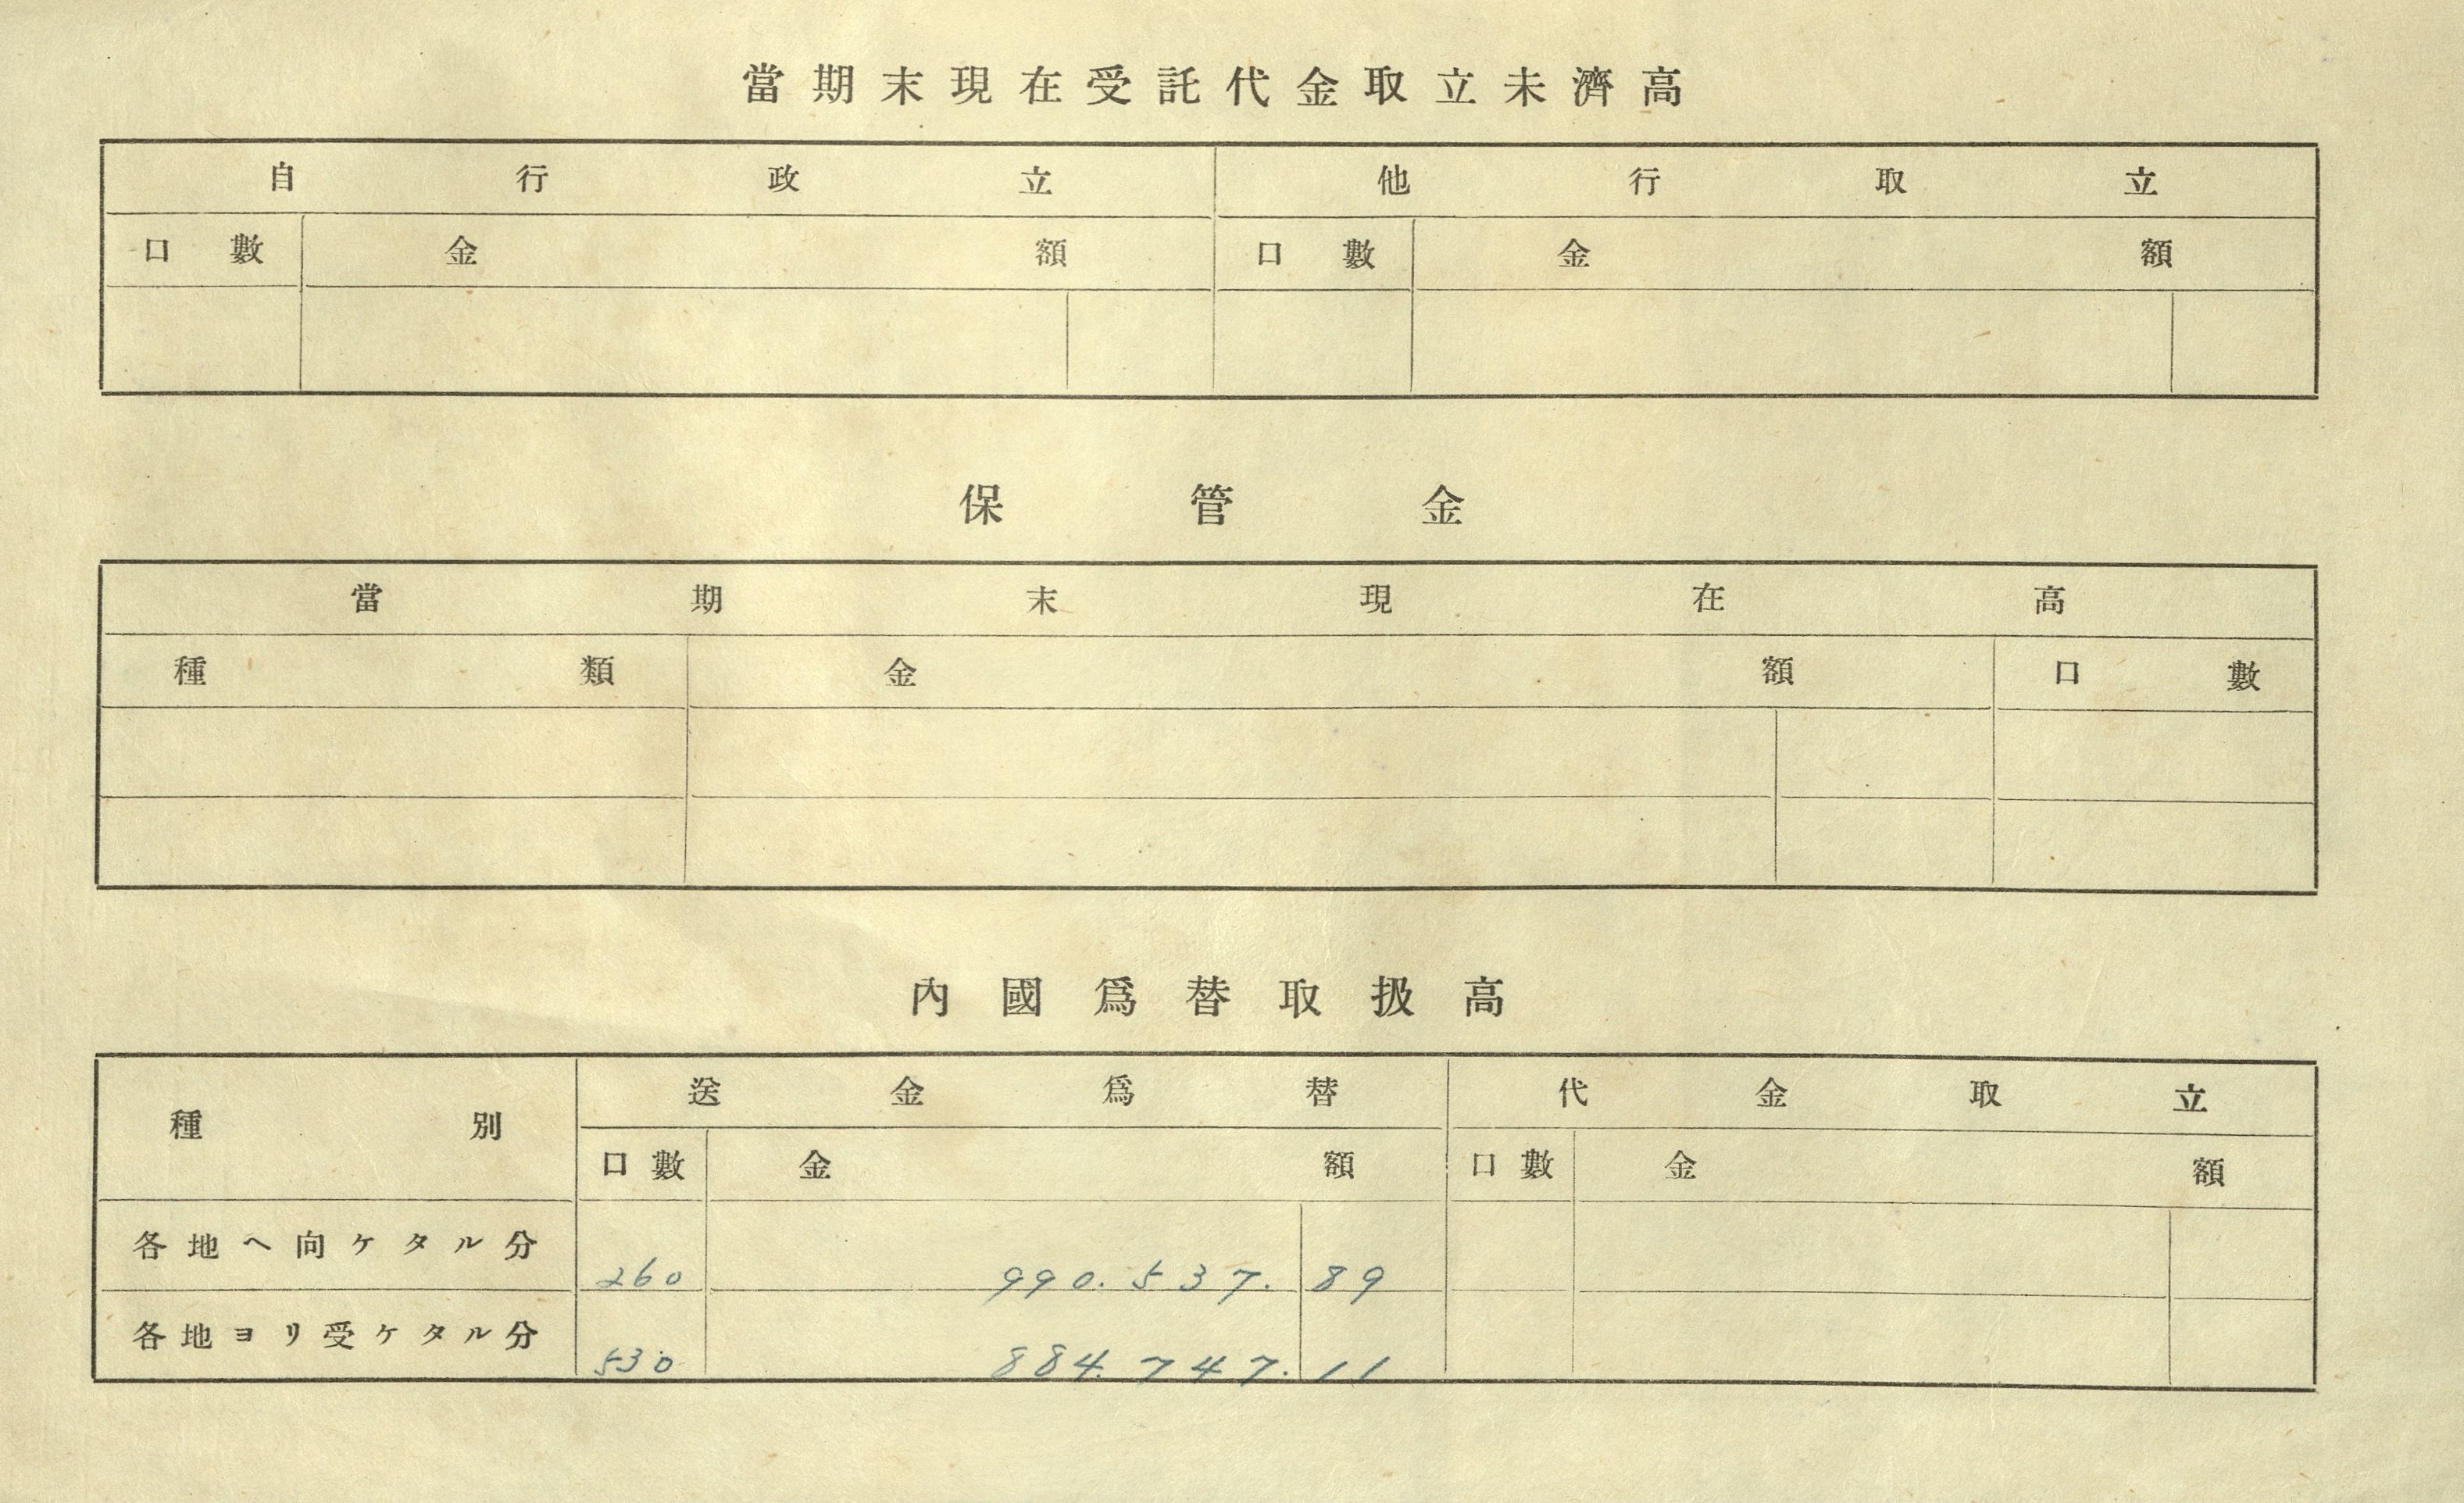 當期末現在受託代金取立未濟高
自行政立 他行取立
口數 金額 口數 金額
保管金
當期末現在高
種類 金額 口數
內國爲替取扱高
種別 送金爲替 代金取立
口數 金額 口數 金額
各地ヘ向ケタル分 260 990.537. 89
各地ヨリ受ケタル分 530 884.747. 11